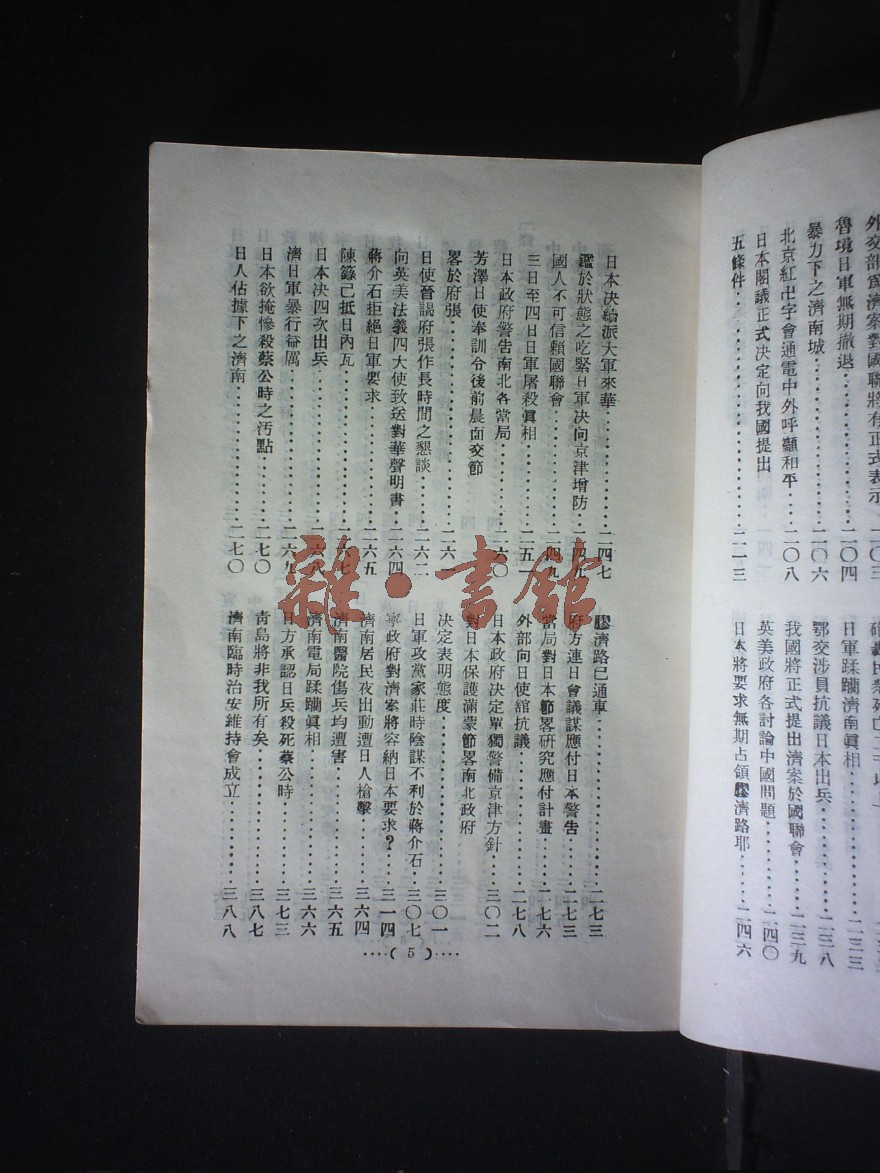 外交部爲濟案對國聯將有正式表示………二〇三
魯境日軍無期撤退………二〇四
暴力下之濟南城………二〇六
北京紅卍字會通電中外呼籲和平…二〇八
日本閣議正式决定向我國提出
五條件………二一三
日軍蹂躪濟南眞相………二三三
鄂交涉員抗議日本出兵………二三八
我國將正式提出濟案於國聯會………二三九
英美政府各討論中國問題………二四〇
日本將要求無期占領膠濟路耶………二四六
日本决續派大軍來華………二四七
鑑於狀態之吃緊日軍决向京津增防…二四九
國人不可信賴國聯會………二四九
三日至四日日軍屠殺眞相………二五一
日本政府警告南北各當局………二六〇
芳澤日使奉訓令後前晨面交節
畧於府張………二六一
日使晉謁府張作長時間之懇談………二六二
向英美法義四大使致送對華聲明書…二六四
蔣介石拒絕日軍要求………二六五
陳籙已抵日內瓦………二六七
日本决四次出兵………二六八
濟日軍暴行益厲………二六九
日本欲掩慘殺蔡公時之汚點………二七〇
日人佔據下之濟南………二七〇
膠濟路已通車………二七三
府方連日會議謀應付日本警告………二七三
當局對日本節畧研究應付計畫………二七六
外部向日使舘抗議………二七八
日本政府决定單獨警備京津方針…三〇二
對日本保護滿蒙節畧南北政府
决定表明態度………三〇一
日軍攻黨家莊時陰謀不利於蔣介石…三〇七
寧政府對濟案將容納日本要求？…三一四
濟南居民夜出動遭日人槍擊………三六四
濟南醫院傷兵均遭害………三六五
濟南電局蹂躪眞相………三六六
日方承認日兵殺死蔡公時………三七三
靑島將非我所有矣………三八七
濟南臨時治安維持會成立………三八八
····( 5 )····
雜·書館